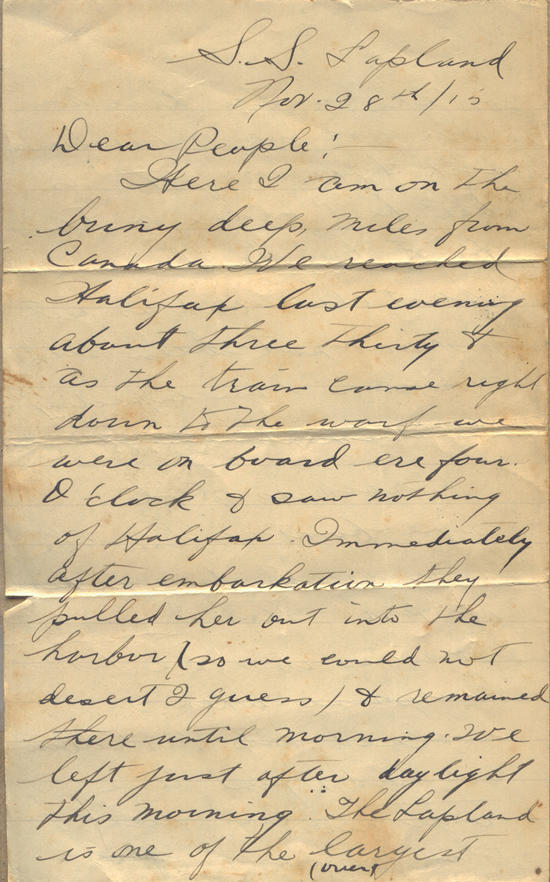 S.S. Lapland
Nov. 28th/15
Dear People:-
Here I am on the
briny deep, miles from
Canada. We reached
Halifax last evening
about three thirty &
as the train came right
down to the warf we
were on board ere four.
O'clock & saw nothing
of Halifax. Immediately
after embarkation they
pulled her out into the
harbor (so we could not
desert I guess) & remained
there until morning. We
left just after daylight
this morning. The Lapland
is one of the largest
(over)